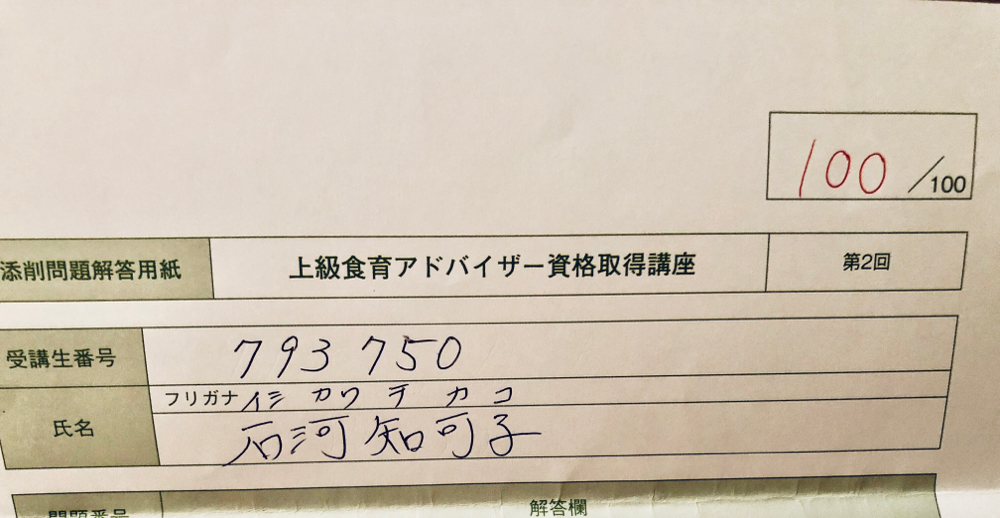 100/100
添削問題解答用紙 上級食育アドバイザー資格取得講座 第2回
受講生番号 793750
フリガナ イシ カワ チ カ コ
氏名 石河 知可子
問題番号 解答欄